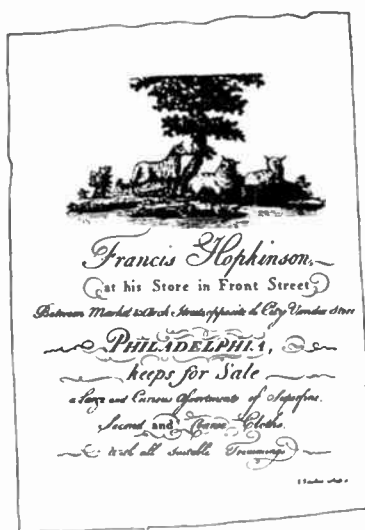 Francis Hopkinson,
at his Store in Front Street
Between Market & Arch Streets opposite to City Vendue Store
PHILADELPHIA,
keeps for Sale
a Large and Curious Assortments of Superfine.
Second and Coarse Cloths.
With all Suitable Trimmings